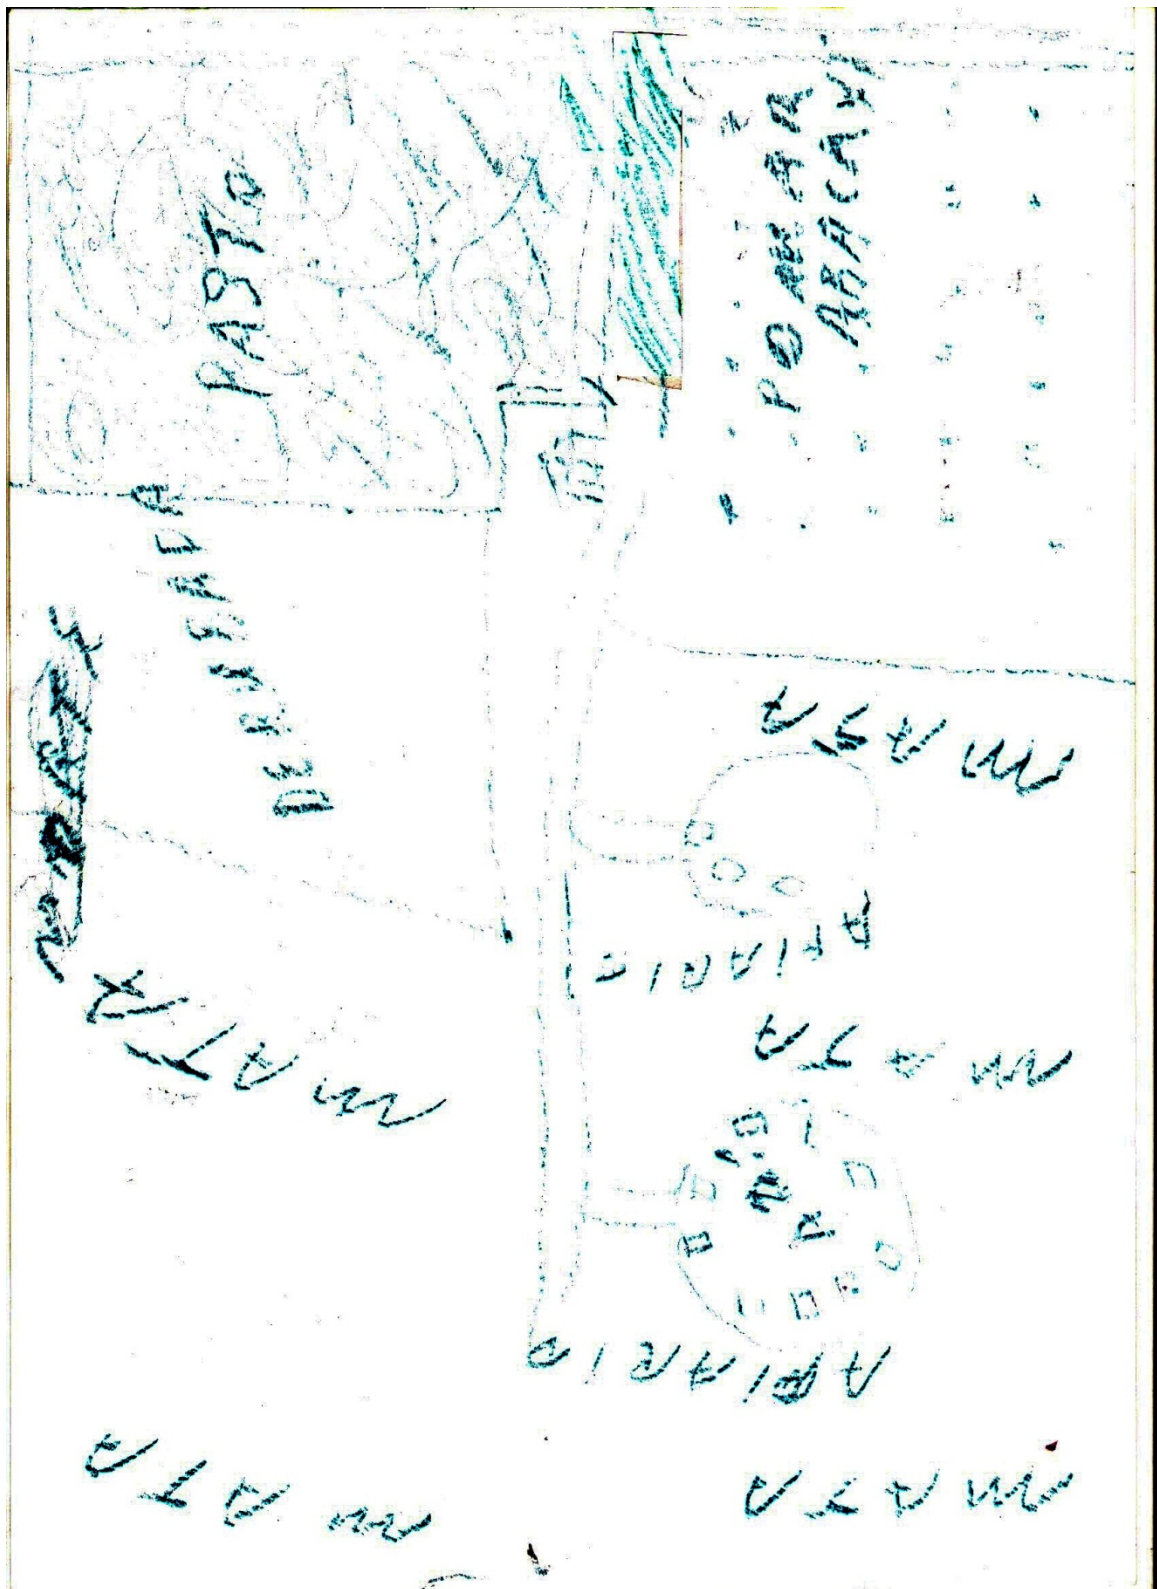 PASTO
POMAR
ABACAXI
DERRUBADA
MATA
APIARIO
MATA
MATA
APIARIO
MATA
MATA